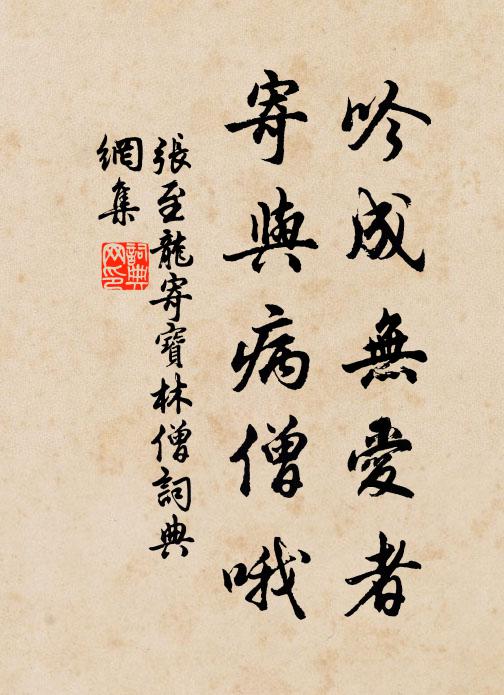 吟成無愛者
寄與病僧哦
張至龍寄寶林僧詞典
網集
詞典
网印